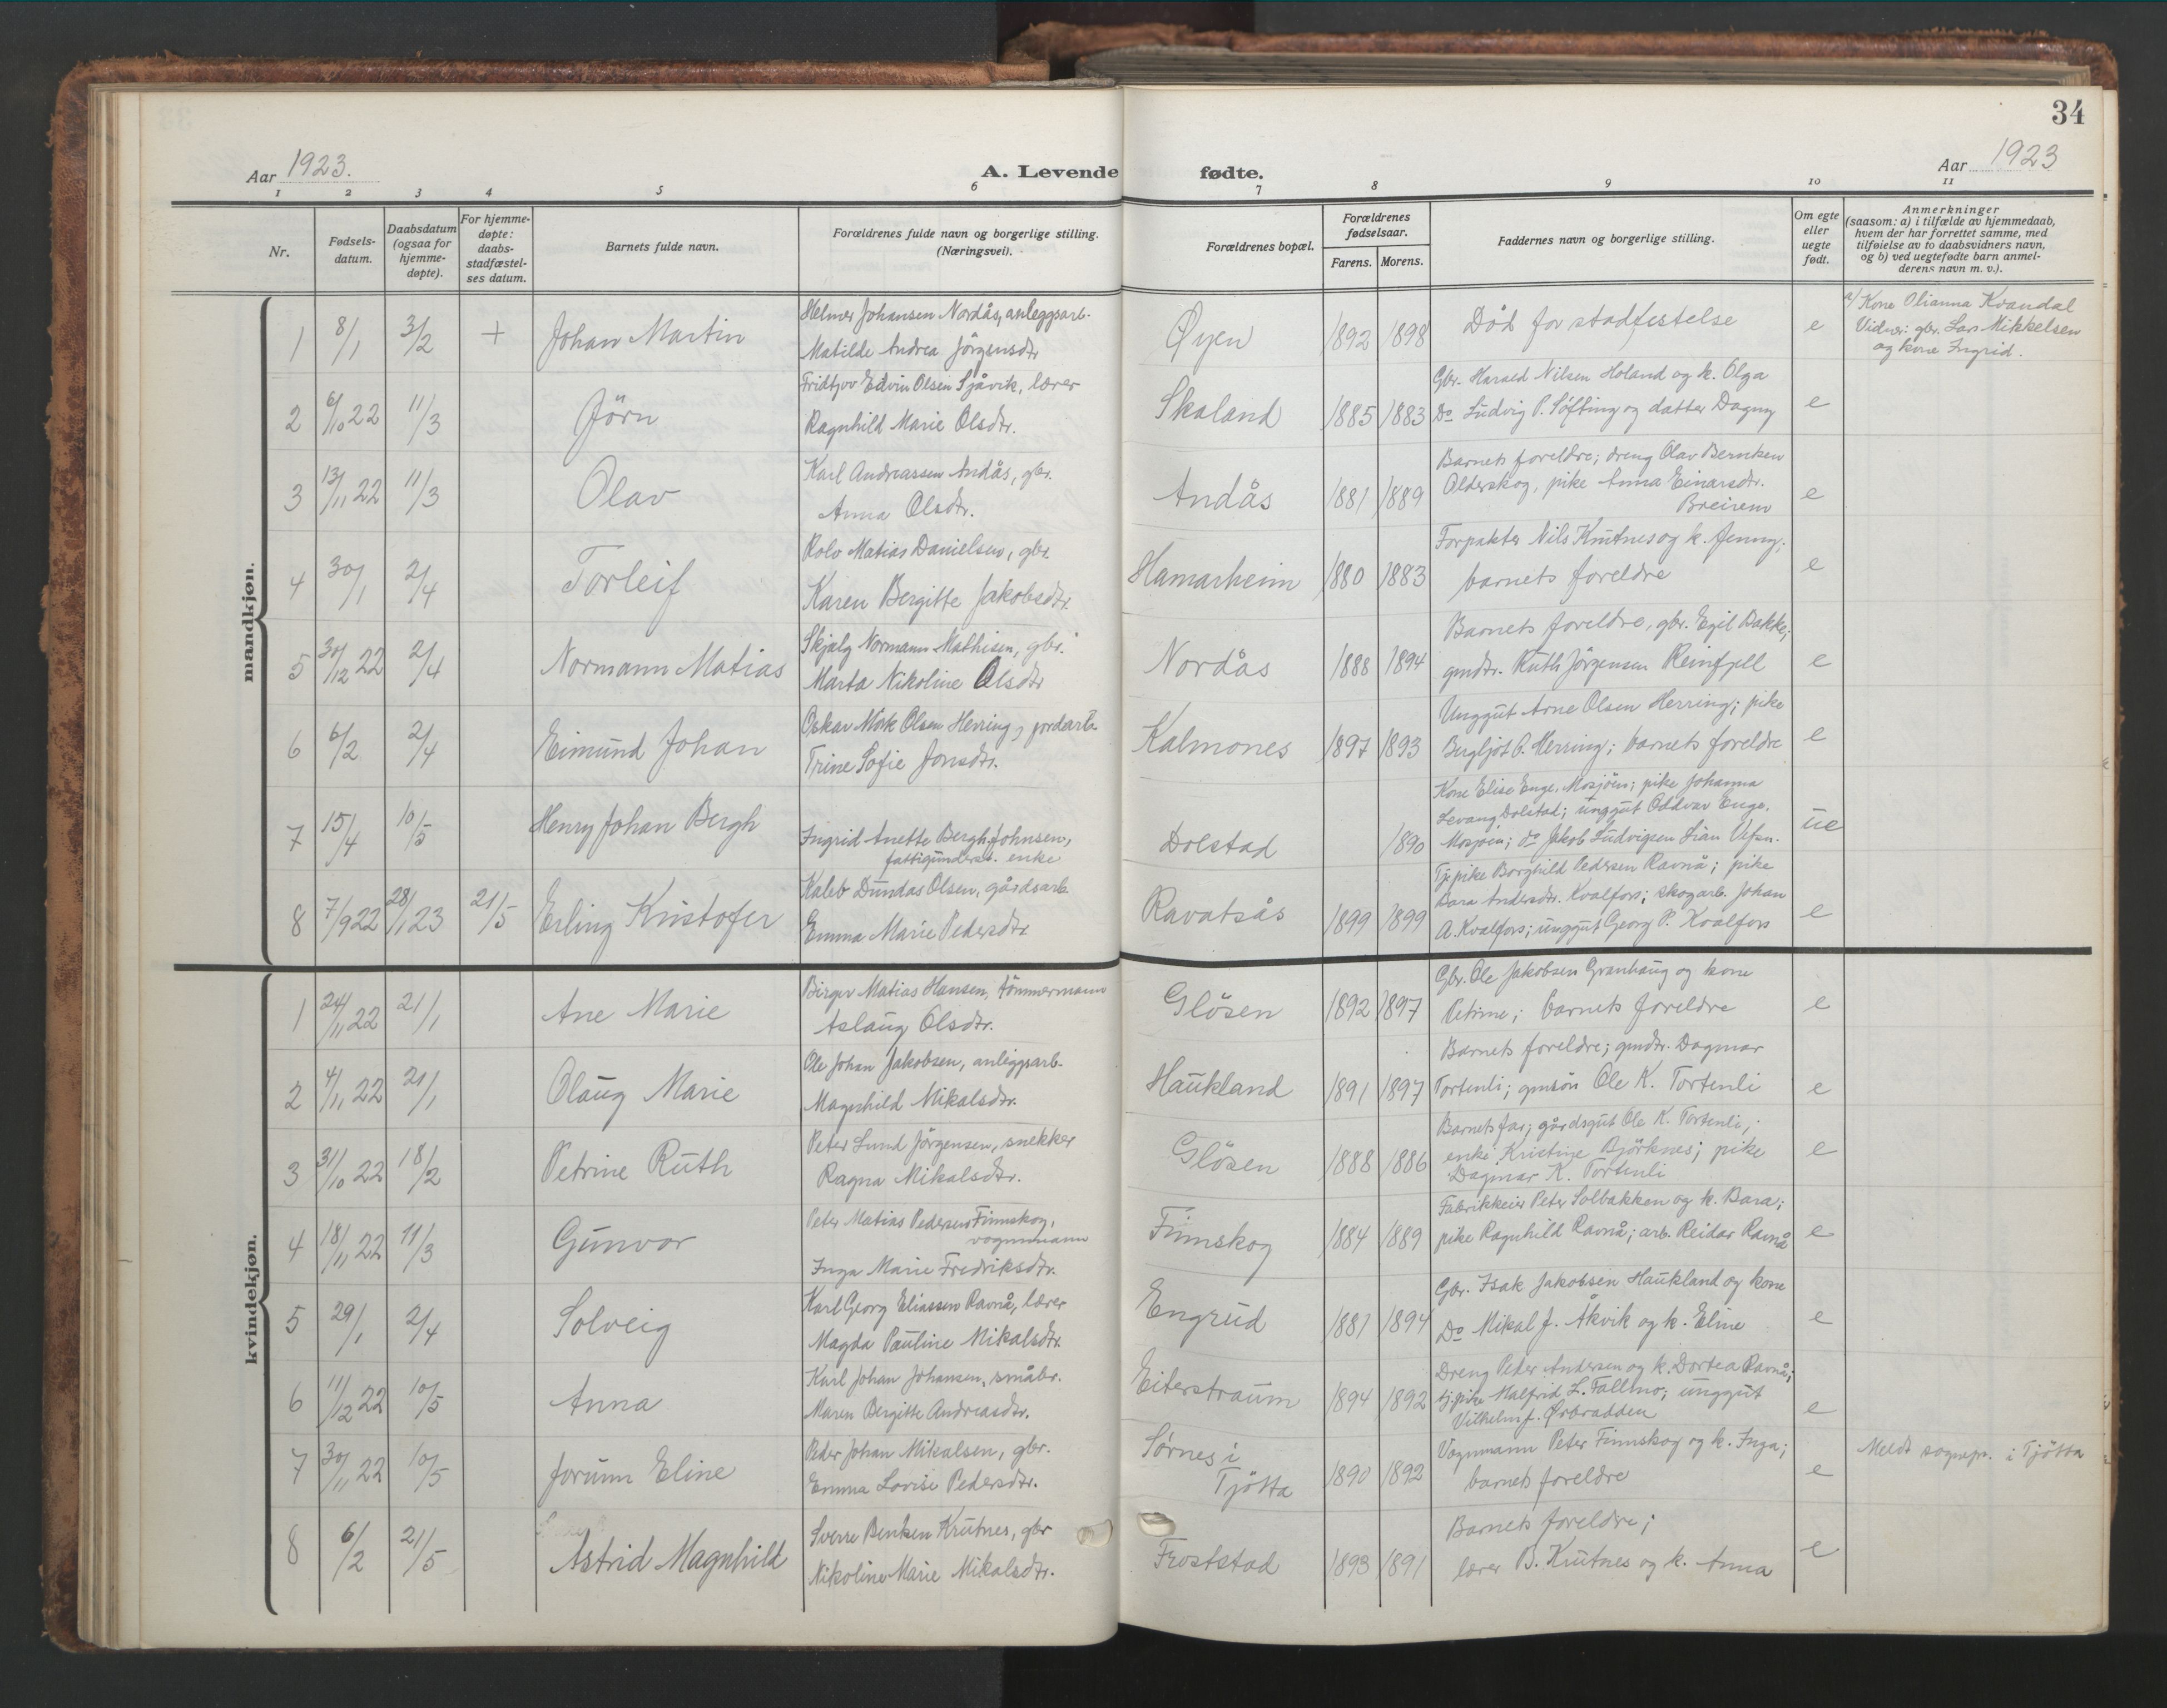 34
Aar 1923.
A. Levende fødte.
Aar 1923
1 2 3 4 5 6 7 8 9 10 11
Nr.
Fødsels-
datum.
Daabsdatum
(ogsaa for
hjemme-
døpte).
For hjemme-
døpte:
daabs-
stadfæstel-
ses datum.
Barnets fulde navn.
Forældrenes fulde navn og borgerlige stilling.
(Næringsvei).
Forældrenes bopæl.
Forældrenes
fødselsaar.
Farens. Morens.
Faddernes navn og borgerlige stilling.
Om egte
eller
uegte
født.
Anmerkninger
(saasom: a) i tilfælde av hjemmedaab,
hvem der har forrettet samme, med
tilføielse av to daabsvidners navn,
og b) ved uegtefødte barn anmel-
derens navn m. v.).
mandkjøn.
1 8/1 3/2 + Johan Martin
Helmer Johansen Nordås, anleggsarb.
Matilde Andrea Jörgensdtr
Øyen 1892 1898
Död for stadfestelse
e
a/ Kone Olianna Kvandal
Vidner: gbr. Lars Mikkelsen
og kone Ingrid.
2 6/10 22 11/3 Jörn
Fridtjov Edvin Olsen Sjåvik, lærer
Ragnhild Marie Olsdtr.
Skaland 1885 1883
Gbr. Harald Nilsen Holand og k. Olga
Do Ludvig P. Söfting og datter Dagny
e
3 13/11 22 11/3 Olav
Karl Andreassen Andås, gbr.
Anna Olsdtr.
Andås 1881 1889
Barnets foreldre; dreng Olav Berntsen
Olderskog, pike Anna Einarsdtr.
Breirem
e
4 30/1 2/4 Torleif
Rolv Matias Danielsen, gbr.
Karen Bergitte Jakobsdtr.
Hamarheim 1880 1883
Forpakter Nils Krutnes og k. Jenny;
barnets foreldre
e
5 30/12 22 2/4 Normann Matias
Skjalg Normann Mathisen, gbr.
Marta Nikoline Olsdtr
Nordås 1888 1894
Barnets foreldre, gbr. Egil Bakke;
gmdtr. Ruth Jörgensen Reinfjell
e
6 6/2 2/4 Eimund Johan
Oskar Mörk Olsen Herring, jordarb.
Trine Sofie Jonsdtr.
Kalmones 1897 1893
Unggut Arne Olsen Herring; pike
Bergljot O. Herring; barnets foreldre
e
7 15/4 10/5 Henry Johan Bergh
Ingrid Anette Bergh Johnsen,
fattigunderst. enke
Dolstad 1890
Kone Elise Enge, Mosjöen; pike Johanna
Levang Dolstad; unggut Oddvar Enge,
Mosjöen; do Jakob Ludvigsen Lian Vefsn.
ue
8 7/9 22 28/1 23 21/5 Erling Kristofer
Kaleb Dundas Olsen, gårdsarb.
Emma Marie Pedersdtr
Ravatsås 1899 1899
Tj.pike Borghild Pedersen Ravnå; pike
Bara Andersdtr. Kvalfors; skogarb. Johan
A. Kvalfors; unggut Georg P. Kvalfors
e
kvindekjøn.
1 24/11 22 21/1 Ane Marie
Birger Matias Hansen, tömmermann
Aslaug Olsdtr.
Glösen 1892 1897
Gbr. Ole Jakobsen Granhaug og kone
Petrine; barnets foreldre
e
2 4/11 22 21/1 Olaug Marie
Ole Johan Jakobsen, anleggsarb.
Magnhild Mikalsdtr.
Haukland 1891 1897
Barnets foreldre; gmdtr. Dagmar
Tortenli; gmsön Ole K. Tortenli
e
3 31/10 22 18/2 Petrine Ruth
Peter Lund Jörgensen, snekker
Ragna Mikalsdtr.
Glösen 1888 1886
Barnets far; gårdsgut Ole K. Tortenli;
enke Kristine Björknes; pike
Dagmar K. Tortenli
e
4 18/11 22 11/3 Gunvor
Peter Matias Pedersen Finnskog,
vognmann
Inga Marie Fredriksdtr.
Finnskog 1884 1889
Fabrikkeier Peter Solbakken og k. Bara;
pike Ragnhild Ravnå; arb. Reidar Ravnå
e
5 29/1 2/4 Solveig
Karl Georg Eliassen Ravnå, lærer
Magda Pauline Mikalsdtr.
Engrud 1881 1894
Gbr. Isak Jakobsen Haukland og kone
Do Mikal J. Åkvik og k. Eline
e
6 11/12 22 10/5 Anna
Karl Johan Johansen, småbr.
Maren Bergitte Andreasdtr.
Eiterstraum 1894 1892
Dreng Peter Andersen og k. Dortea Ravnå;
tj.pike Malfrid L. Fallmo; unggut
Vilhelm J. Örbradden
e
7 30/11 22 10/5 Jorunn Eline
Peder Johan Mikalsen, gbr.
Emma Lovise Pedersdtr.
Sørnes i
Tjötta
1890 1892
Vognmann Peter Finnskog og k. Inga;
barnets foreldre
e
Meldt sognepr. i Tjötta
8 6/2 21/5 Astrid Magnhild
Sverre Benken Krutnes, gbr
Nikoline Marie Mikalsdtr.
Froststad 1893 1891
Barnets foreldre;
lærer B. Krutnes og k. Anna
e